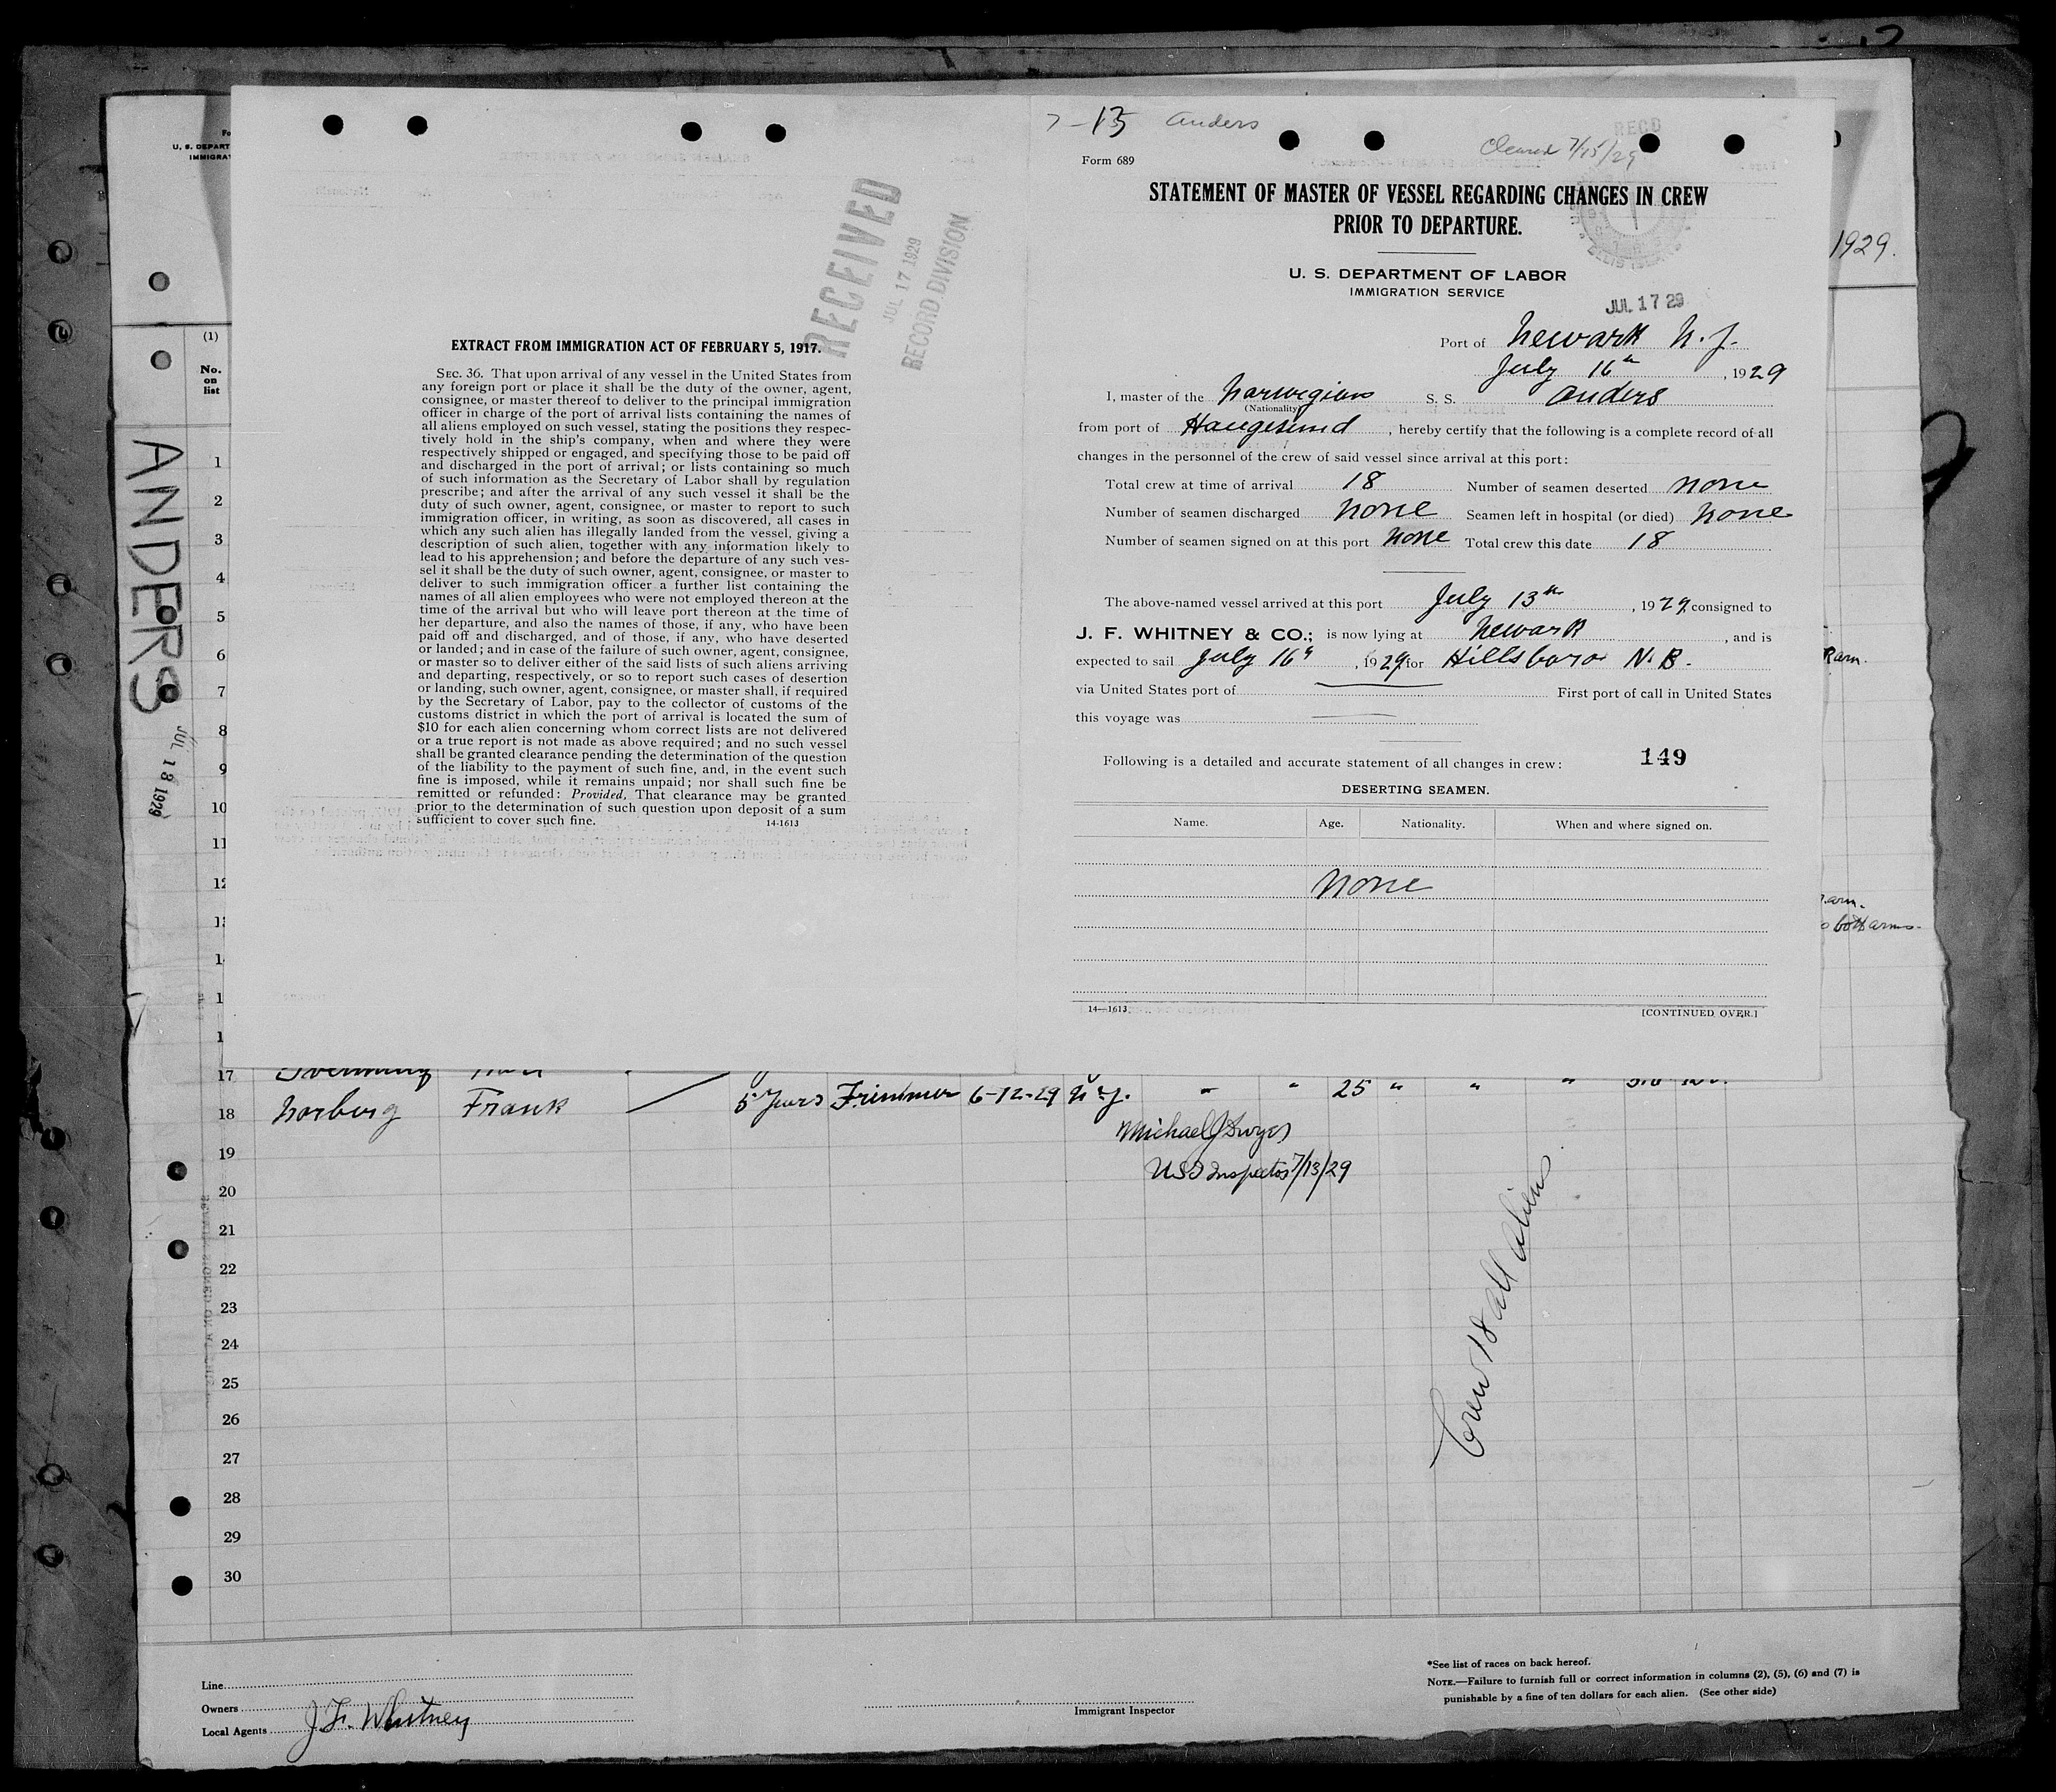 7-15 Anders
Cleared 7/15/29
RECD
Form 689
STATEMENT OF MASTER OF VESSEL REGARDING CHANGES IN CREW
PRIOR TO DEPARTURE.
U. S. DEPARTMENT OF LABOR
IMMIGRATION SERVICE
JUL 17 29
Port of Newark N. J.
July 16th, 1929
I, master of the Norwegian S. S. Anders
(Nationality)
from port of Haugesund, hereby certify that the following is a complete record of all
changes in the personnel of the crew of said vessel since arrival at this port:
Total crew at time of arrival 18 Number of seamen deserted none
Number of seamen discharged none Seamen left in hospital (or died) none
Number of seamen signed on at this port none Total crew this date 18
The above-named vessel arrived at this port July 13th, 1929 consigned to
J. F. WHITNEY & CO.; is now lying at Newark, and is
expected to sail July 16th, 1929 for Hillsboro N. B.
via United States port of First port of call in United States
this voyage was
Following is a detailed and accurate statement of all changes in crew: 149
DESERTING SEAMEN.
Name. Age. Nationality. When and where signed on.
none
14—1613 [CONTINUED OVER.]
RECEIVED
JUL 17 1929
RECORD DIVISION
EXTRACT FROM IMMIGRATION ACT OF FEBRUARY 5, 1917.
SEC. 36. That upon arrival of any vessel in the United States from
any foreign port or place it shall be the duty of the owner, agent,
consignee, or master thereof to deliver to the principal immigration
officer in charge of the port of arrival lists containing the names of
all aliens employed on such vessel, stating the positions they respec-
tively hold in the ship's company, when and where they were
respectively shipped or engaged, and specifying those to be paid off
and discharged in the port of arrival; or lists containing so much
of such information as the Secretary of Labor shall by regulation
prescribe; and after the arrival of any such vessel it shall be the
duty of such owner, agent, consignee, or master to report to such
immigration officer, in writing, as soon as discovered, all cases in
which any such alien has illegally landed from the vessel, giving a
description of such alien, together with any information likely to
lead to his apprehension; and before the departure of any such ves-
sel it shall be the duty of such owner, agent, consignee, or master to
deliver to such immigration officer a further list containing the
names of all alien employees who were not employed thereon at the
time of the arrival but who will leave port thereon at the time of
her departure, and also the names of those, if any, who have been
paid off and discharged, and of those, if any, who have deserted
or landed; and in case of the failure of such owner, agent, consignee,
or master so to deliver either of the said lists of such aliens arriving
and departing, respectively, or so to report such cases of desertion
or landing, such owner, agent, consignee, or master shall, if required
by the Secretary of Labor, pay to the collector of customs of the
customs district in which the port of arrival is located the sum of
$10 for each alien concerning whom correct lists are not delivered
or a true report is not made as above required; and no such vessel
shall be granted clearance pending the determination of the question
of the liability to the payment of such fine, and, in the event such
fine is imposed, while it remains unpaid; nor shall such fine be
remitted or refunded: Provided, That clearance may be granted
prior to the determination of such question upon deposit of a sum
sufficient to cover such fine.
14-1613
1929.
(1)
No.
on
list
ANDERS
JUL 18 1929
1
2
3
4
5
6
7
8
9
10
11
12
R arm.
arm.
both arms.
17
18 Norberg Frank 5 years 6-12-29 N.Y. " " 25 " " "
19 Michael J Dwyer
20 USI Inspector 7/13/29
21
22
23
24
25
26
27
28
29
30
Crew 18 all aliens
Line
Owners
Local Agents J. F. Whitney
Immigrant Inspector
*See list of races on back hereof.
NOTE.—Failure to furnish full or correct information in columns (2), (5), (6) and (7) is
punishable by a fine of ten dollars for each alien. (See other side)